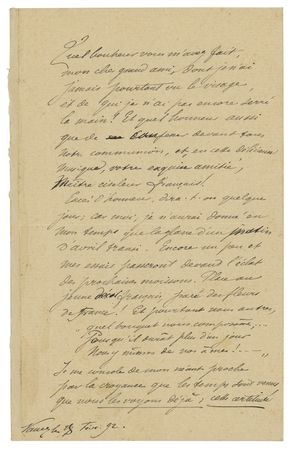 Quel bonheur vous m'avez fait,
mon cher grand ami, dont je n'ai
jamais pourtant vu le visage,
et de qui je n'ai pas encore serré
la main! Et quel honneur aussi
que de devant tous
notre communion, et, en cette
musique, votre exquise amitié,
Maître français!
d'honneur, dira-t-on quelque
jour; car moi, je n'aurai donné en
mon temps que la flore d'un matin
d'avril transi. Encore un peu et
mes essais passeront devant l'éclat
des prochaines moissons. Place au
jeune français paré des fleurs
de France! Et pourtant nous autres,
"quel bouquet nous composâmes...
Puisqu'il durât plus d'un jour
Nous y mîmes de nos âmes!.. —
Je me console de mon néant proche
par la croyance que les temps dont
que nous les voyons déjà; cette certitude
92.